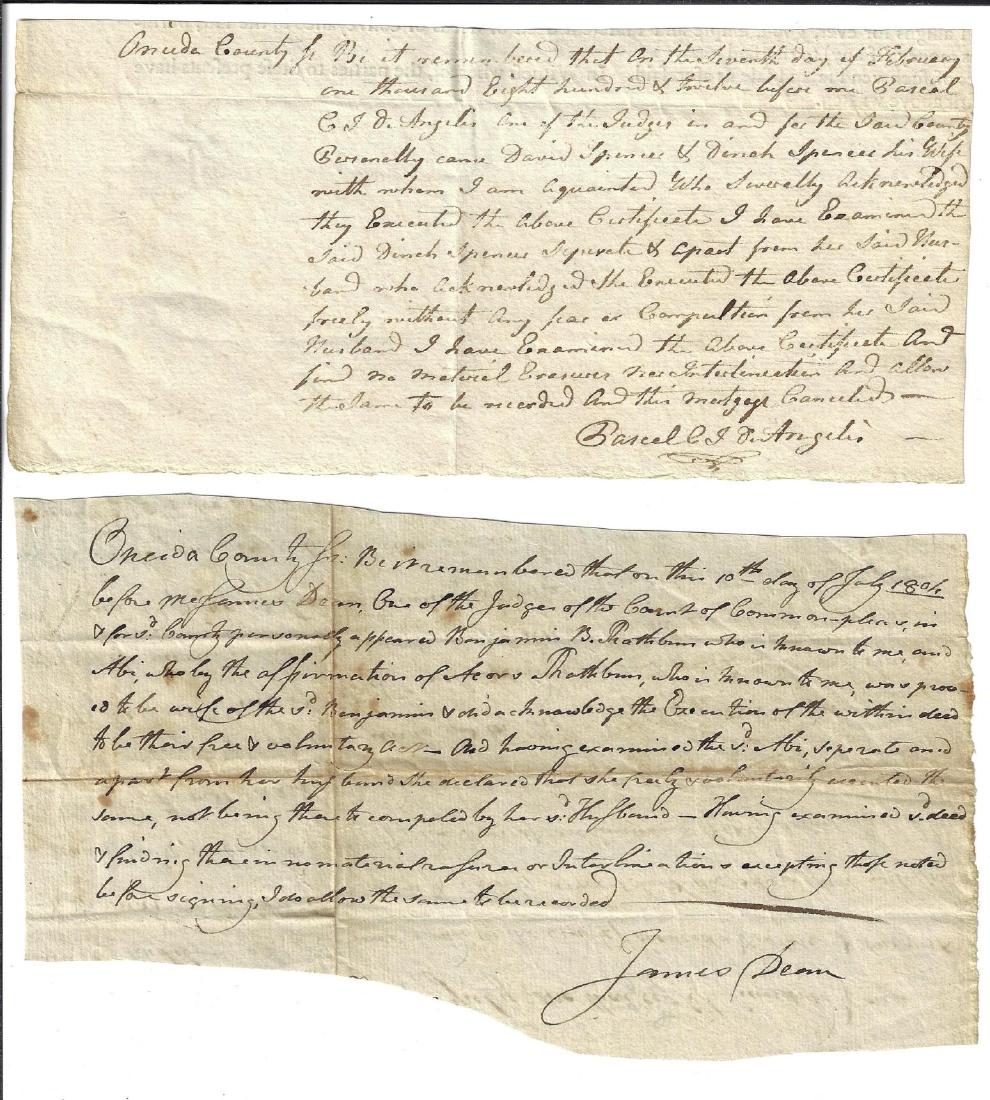 Oneida County ss Be it remembered that on the Seventh day of February
one thousand Eight hundred & twelve before me Pascal
C I De Angelis One of the Judges in and for the Said County
Personally came David Spencer & Dinah Spencer his Wife
with whom I am aquainted Who Severally Acknowledged
they Executed the above Certificate I have Examined the
Said Dinah Spencer Seperate & apart from her Said Hus-
band who Acknowledged She Executed the above Certificate
freely without Any fear or Compultion from her Said
Husband I have Examined the above Certificate And
find no material Erasures nor Interlineation And allow
the Same to be recorded And this mortgage Canceled —
Pascal C I De Angelis —
Oneida County Ss: Be it remembered that on this 10th day of July 1804
before me James Dean, One of the Judges of the Court of Common pleas, in
& for sd. County personally appeared Benjamin B. Rathbun who is known to me, and
Abi, who by the affirmation of Acors Rathbun, who is known to me, was prov-
ed to be wife of the sd. Benjamin & did acknowledge the Execution of the within deed
to be their free & voluntary act — And having examined the sd. Abi, seperate and
apart from her husband she declared that she freely & voluntarily executed the
same, not being thereto compeled by her sd. Husband — Having examined sd. deed
& finding therein no material rasures or Interlineations excepting those noted
before signing, I do allow the same to be recorded
James Dean